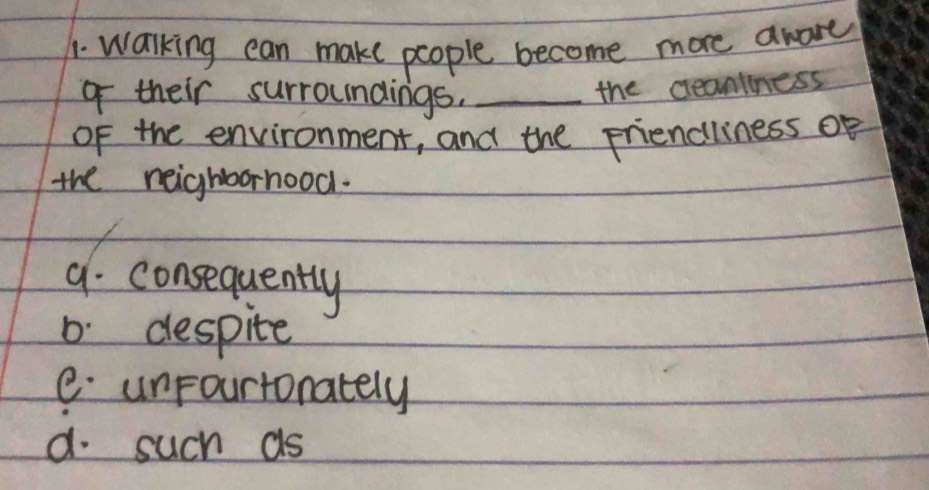 1. Walking can make people become more aware
of their surroundings. ______ the cleanliness
of the environment, and the friendliness of
the neighborhood.
a. consequently
b. despite
c. unfourtonately
d. such as